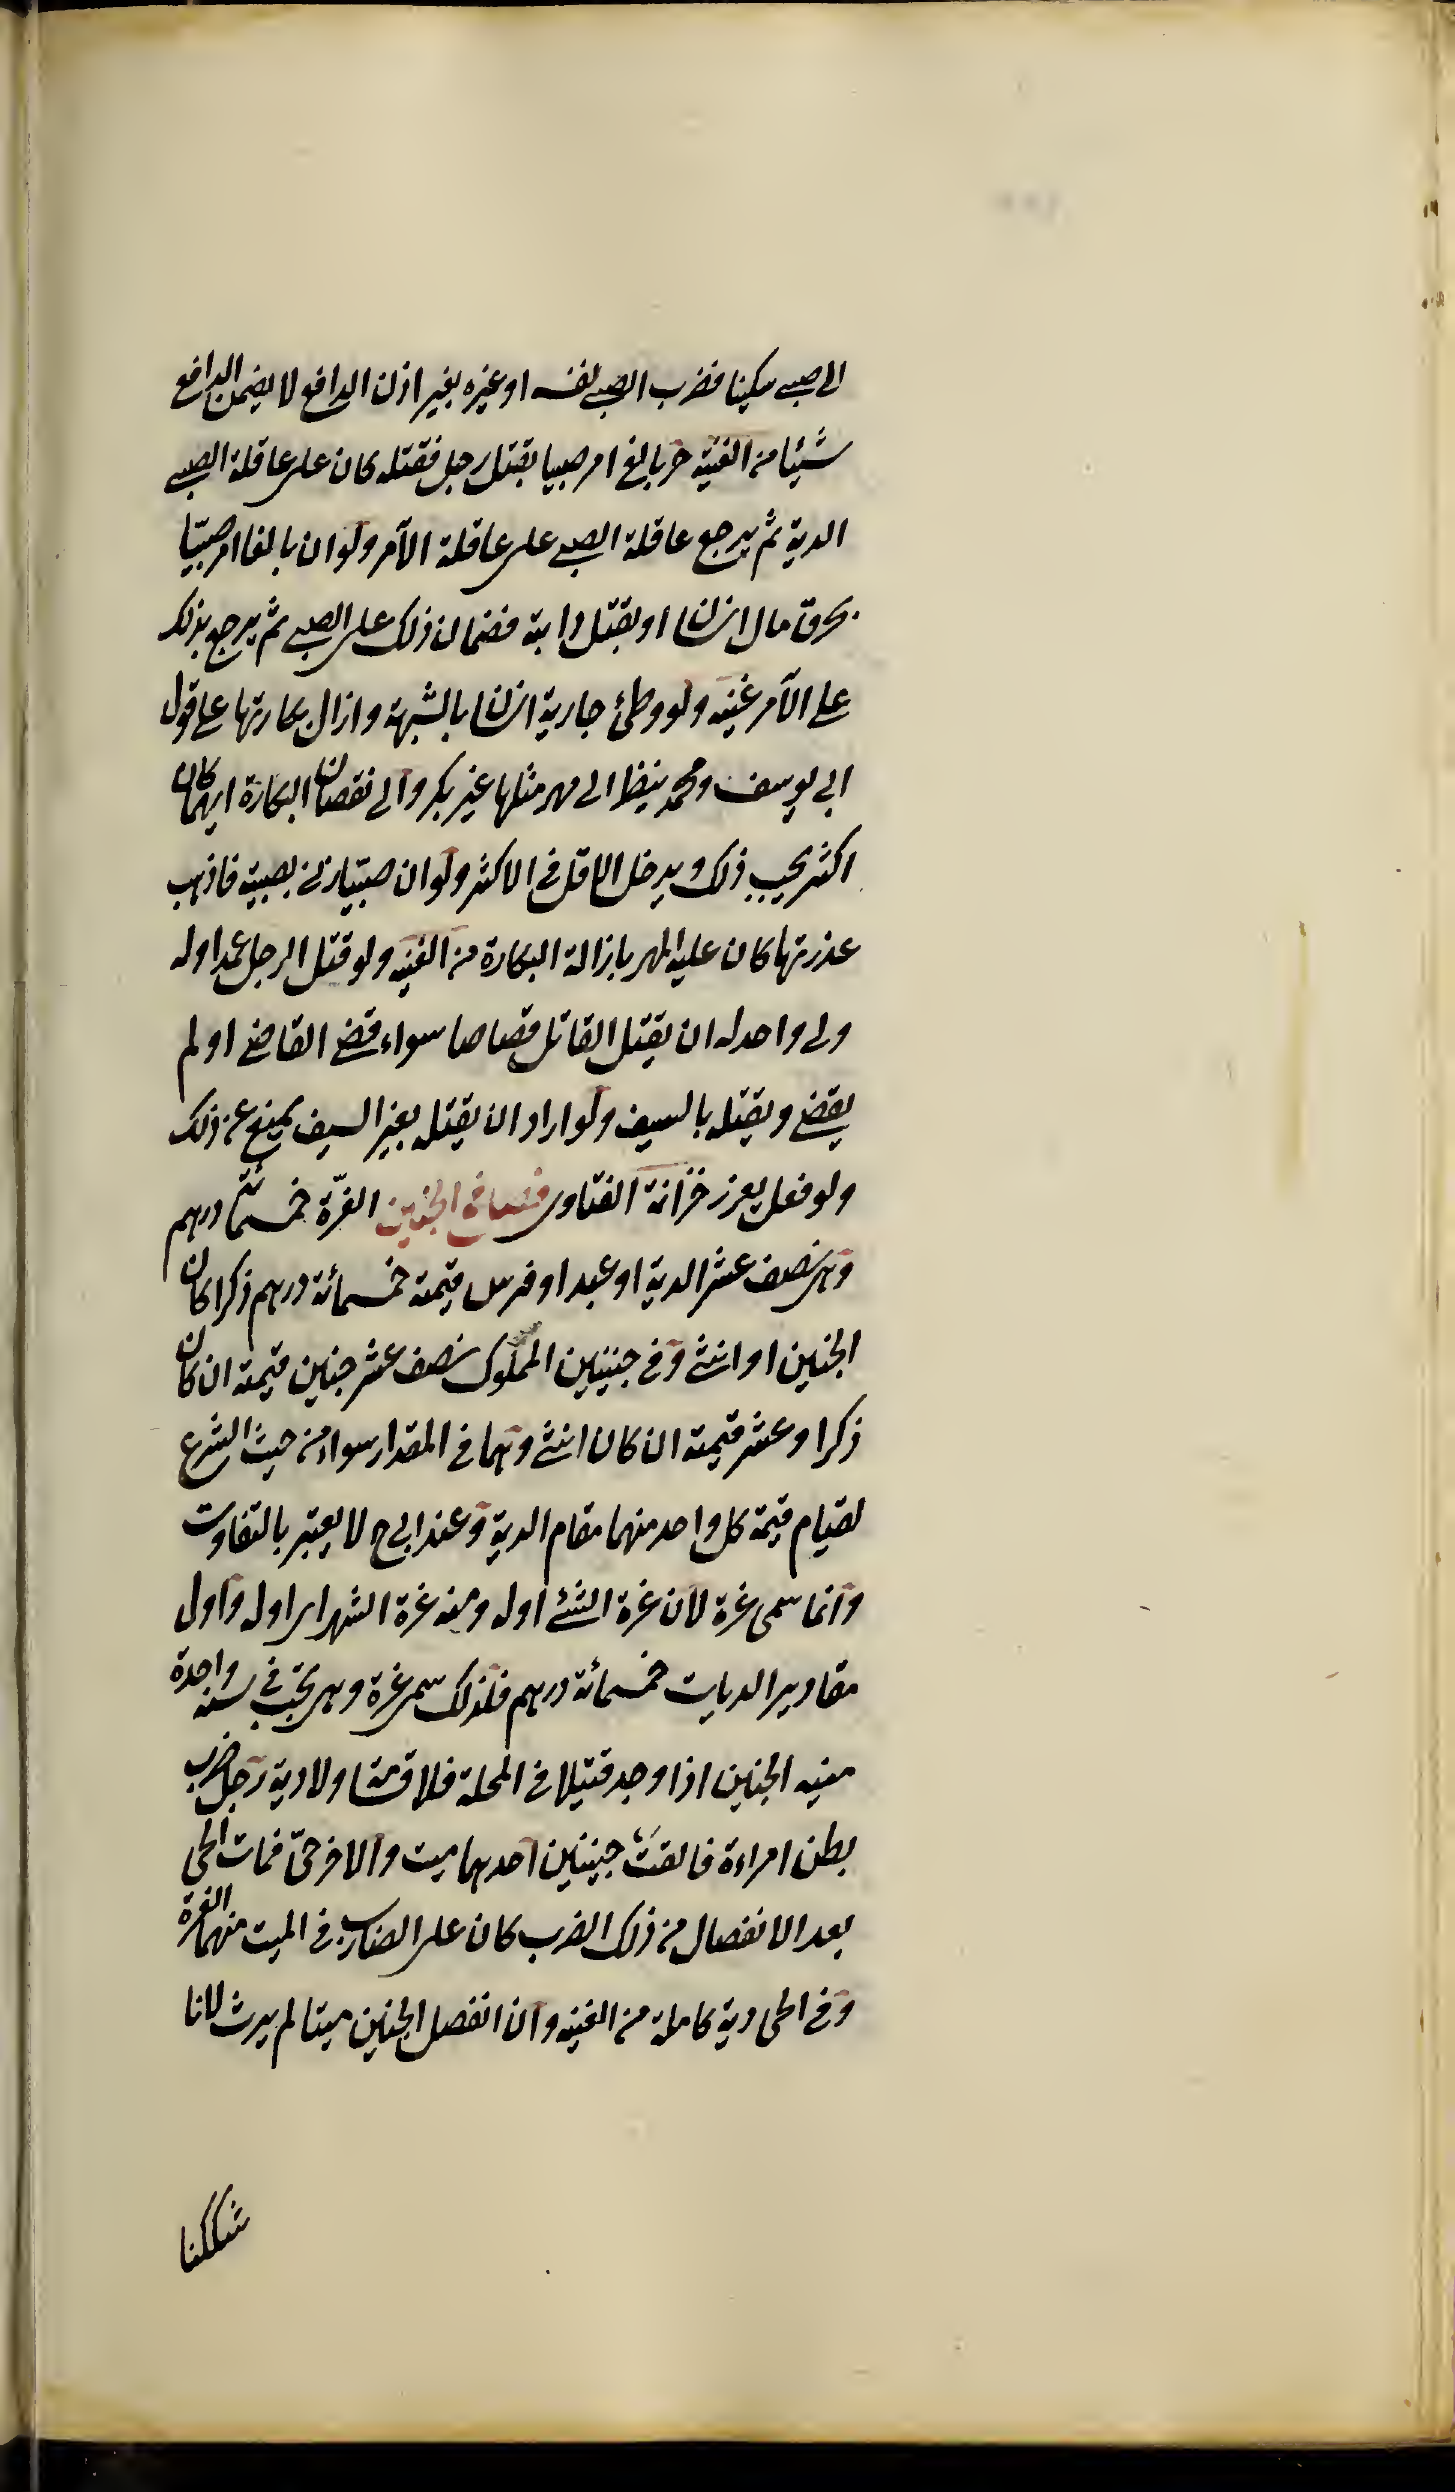 الى صبى سكينا فضرب الصبى نفسه او غيره بغير اذن الدافع لا يضمن الدافع
شيئا من الغنية حر بالغ امر صبيا بقتل رجل فقتله كان على عاقلة الصبى
الدية ثم يرجع عاقلة الصبى على عاقلة الآمر ولو ان بالغا امر صبيّا
بحرق مال انسان او بقتل دابة فضمان ذلك على الصبى ثم يرجع بذلك
على الآمر غنيه ولو وطئ جارية انسان بالشبهة وازال بكارتها على قول
ابى يوسف ومحمد ينظر الى مهر مثلها غير بكر والى نقصان البكارة ايهما كان
اكثر يجب ذلك ويدخل الاقل فى الاكثر ولو ان صبيّا زنى بصبية فاذهب
عذرتها كان عليه المهر بازالة البكارة من الغنيه ولو قتل الرجل عمدا وله
ولى واحد له ان يقتل القاتل قصاصا سواء قضى القاضى او لم
يقض ويقتله بالسيف ولو اراد ان يقتله بغير السيف يمنع عن ذلك
ولو فعل يعزر خزانة الفتاوى فصل فى الجنين الغرّة خمسمائة درهم
وهى نصف عشر الدية او عبد او فرس قيمته خمسمائة درهم ذكرا كان
الجنين او انثى وفى جنينين المملوك نصف عشر جنين قيمته ان كان
ذكرا وعشر قيمته ان كان انثى وهما فى المقدار سواء من حيث الشرع
لقيام قيمة كل واحد منهما مقام الدية وعند ابى ح لا يعتبر بالتفاوت
وانما سمى غرة لان غرة الشئ اوله ومنه غرة الشهر اى اوله واول
مقادير الديات خمسمائة درهم فلذلك سمى غرة وهى تجب فى سنة واحدة
منيه الجنين اذا وجد قتيلا فى المحلة فلا قسامة ولا دية رجل ضرب
بطن امراءة فالقت جنينين احدهما ميت والاخر حىّ فمات الحى
بعد الانفصال من ذلك الضرب كان على الضارب فى الميت منهما الغرة
وفى الحى دية كاملة من الغنيه وان انفصل الجنين ميتا لم يرث لانا
شككنا